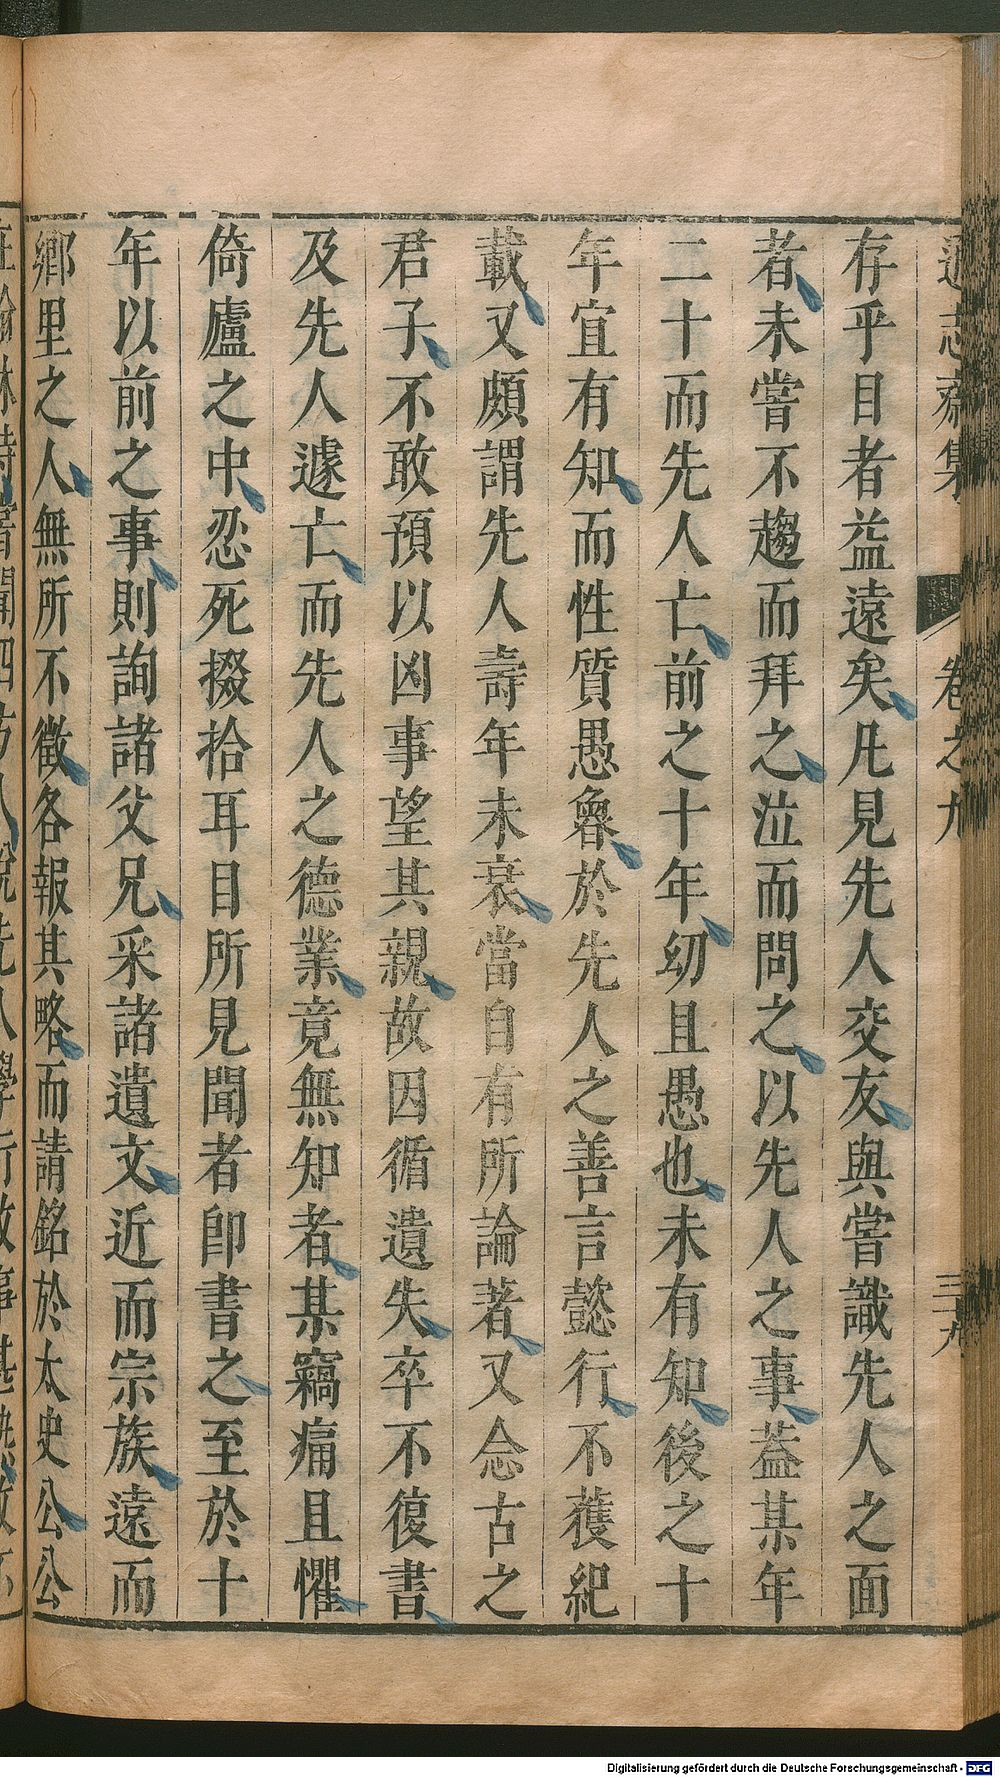 遜志齋集 卷之九 三十九
存乎目者益遠矣凡見先人交友與嘗識先人之面
者未嘗不趨而拜之泣而問之以先人之事葢某年
二十而先人亡前之十年幼且愚也未有知後之十
年宜有知而性質愚魯於先人之善言懿行不獲紀
載又頗謂先人壽年未衰當自有所論著又念古之
君子不敢預以凶事望其親故因循遺失卒不復書
及先人遽亡而先人之德業竟無知者某竊痛且懼
倚廬之中忍死掇拾耳目所見聞者卽書之至於十
年以前之事則詢諸父兄采諸遺文近而宗族遠而
鄉里之人無所不徵各報其略而請銘於太史公公
Digitalisierung gefördert durch die Deutsche Forschungsgemeinschaft - DFG